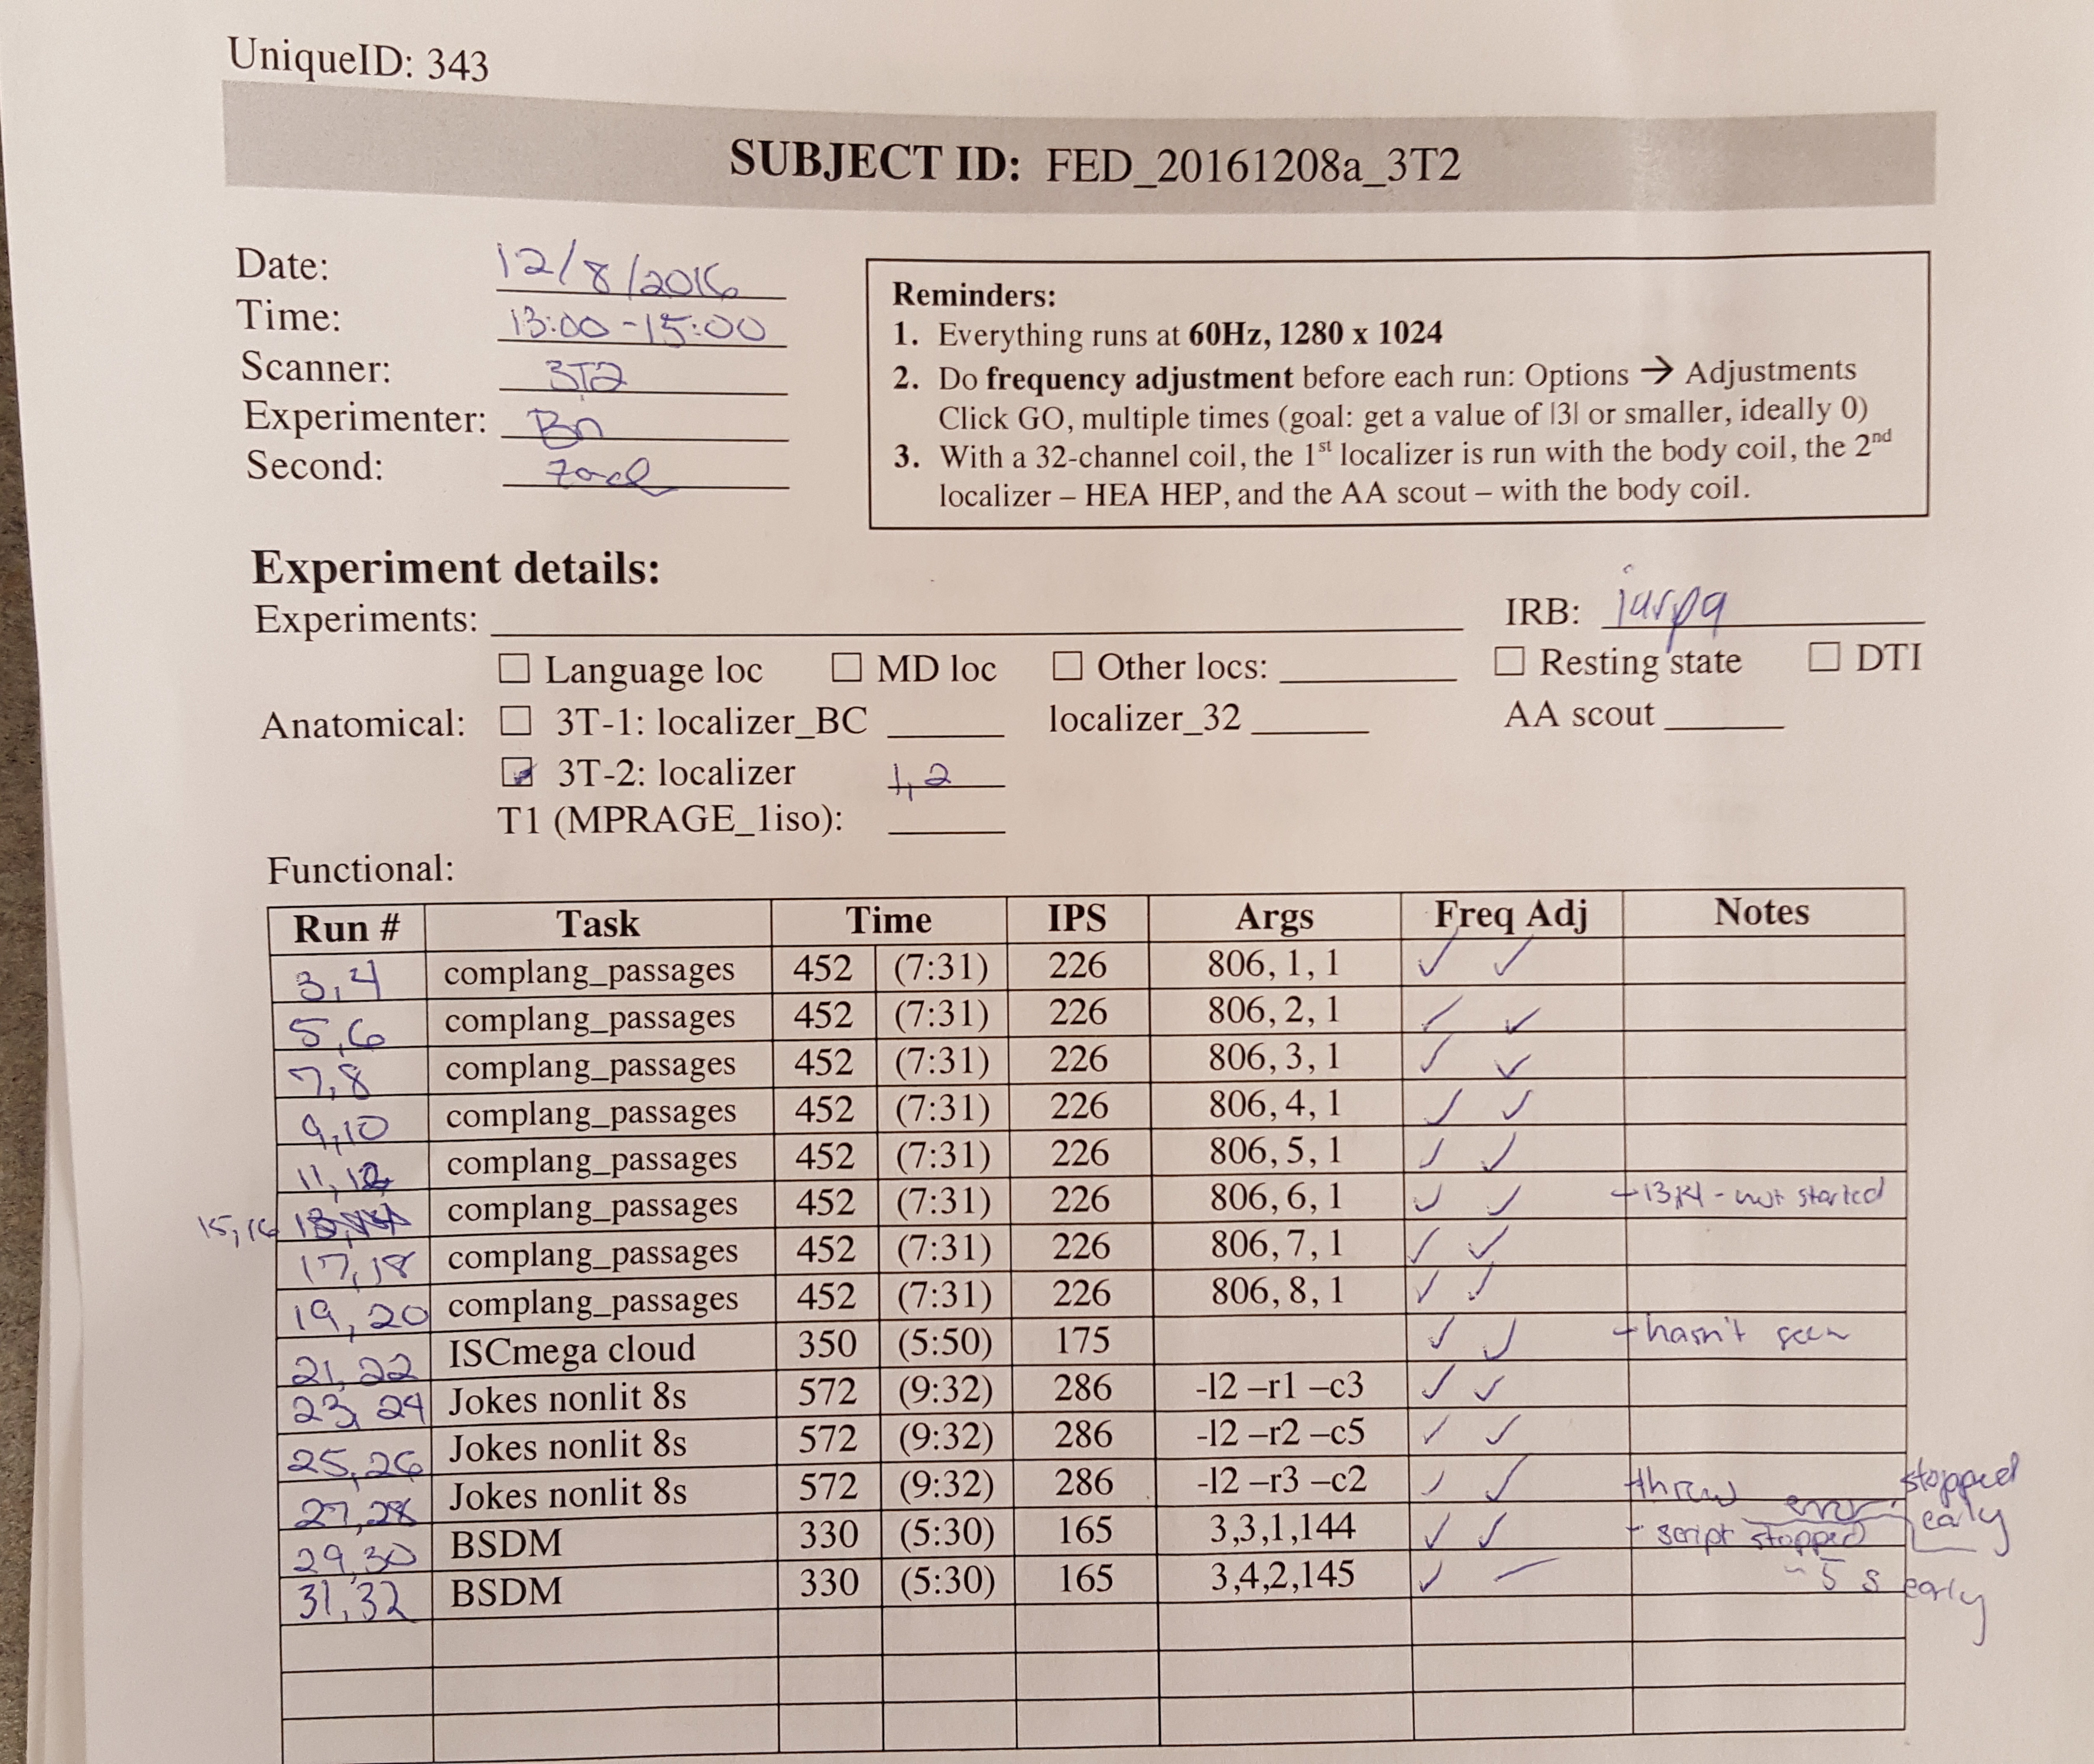 UniqueID: 343
SUBJECT ID: FED_20161208a_3T2
Date: 12/8/2016
Time: 13:00-15:00
Scanner: 3T2
Experimenter:
Second:
Reminders:
1. Everything runs at 60Hz, 1280 x 1024
2. Do frequency adjustment before each run: Options → Adjustments
Click GO, multiple times (goal: get a value of |3| or smaller, ideally 0)
3. With a 32-channel coil, the 1st localizer is run with the body coil, the 2nd
localizer – HEA HEP, and the AA scout – with the body coil.
Experiment details:
Experiments: IRB: iarpa
☐ Language loc ☐ MD loc ☐ Other locs: ☐ Resting state ☐ DTI
Anatomical: ☐ 3T-1: localizer_BC localizer_32 AA scout
☑ 3T-2: localizer 1,2
T1 (MPRAGE_1iso):
Functional:
Run # Task Time IPS Args Freq Adj Notes
3,4 complang_passages 452 (7:31) 226 806, 1, 1 ✓ ✓
5,6 complang_passages 452 (7:31) 226 806, 2, 1 ✓ ✓
7,8 complang_passages 452 (7:31) 226 806, 3, 1 ✓ ✓
9,10 complang_passages 452 (7:31) 226 806, 4, 1 ✓ ✓
11,12 complang_passages 452 (7:31) 226 806, 5, 1 ✓ ✓
15,16 13,14 complang_passages 452 (7:31) 226 806, 6, 1 ✓ ✓ - 13,14 - not started
17,18 complang_passages 452 (7:31) 226 806, 7, 1 ✓ ✓
19, 20 complang_passages 452 (7:31) 226 806, 8, 1 ✓ ✓
21, 22 ISCmega cloud 350 (5:50) 175 ✓ ✓ - hasn't seen
23, 24 Jokes nonlit 8s 572 (9:32) 286 -l2 –r1 –c3 ✓ ✓
25,26 Jokes nonlit 8s 572 (9:32) 286 -l2 –r2 –c5 ✓ ✓
27,28 Jokes nonlit 8s 572 (9:32) 286 -l2 –r3 –c2 ✓ ✓ threw error, stopped early
29,30 BSDM 330 (5:30) 165 3,3,1,144 ✓ ✓ - script stopped
31,32 BSDM 330 (5:30) 165 3,4,2,145 ✓ – ~5 s early